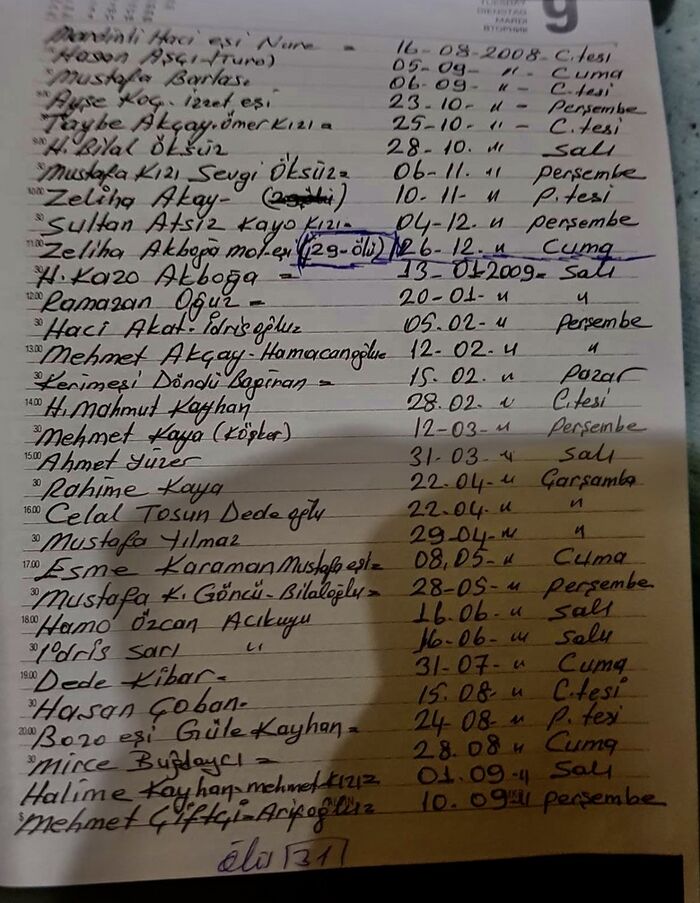 TUESDAY
DIENSTAG
MARDI
ВТОРНИК
9
Mardinli Haci eşi Nure = 16-08-2008- C.tesi
Hasan Aşçı-(Turo) 05-09- " - Cuma
Mustafa Barlas. 06-09- " - C.tesi
Ayşe Koç. izzet eşi 23-10- " - Perşembe
Taybe Akçay. Ömer Kızı = 25-10- " - C.tesi
H. Bilal Öksüz 28-10. " Salı
Mustafa Kızı Sevgi Öksüz = 06-11. " perşembe
10.00 Zeliha Akay- 10-11- " P.tesi
30 Sultan Atsız Kayo Kızı = 04-12. " perşembe
11.00 Zeliha Akboğa mol.eşi (29-ölü) 26-12. " Cuma
30 H. Kazo Akboğa = 13-01-2009- Salı
12.00 Ramazan Oğuz = 20-01- " "
30 Haci Akat-İdrisoğlu= 05.02- " Perşembe
13.00 Mehmet Akçay-Hamacanoğlu= 12-02- " "
30 Kerimeşi Döndü Bagiran = 15.02. " Pazar
14.00 H. Mahmut Kayhan 28.02. " C.tesi
30 Mehmet Kaya (Köşker) 12-03- " Perşembe
15.00 Ahmet Yüzer 31-03- " Salı
30 Rahime Kaya 22.04- " Çarşamba
16.00 Celal Tosun Dedeoğlu 22.04- " "
30 Mustafa Yılmaz 29-04- " "
17.00 Esme Karaman Mustafa eşi= 08.05- " Cuma
30 Mustafa K. Göncü-Bilaloğlu= 28-05- " perşembe
18.00 Hamo Özcan Acıkuyu 16.06- " Salı
30 İdris Sarı " 16-06- " Salu
19.00 Dede Kibar- 31-07- " Cuma
30 Hasan Çoban- 15.08- " C.tesi
20.00 Bozo eşi Güle Kayhan = 24-08- " P.tesi
30 Mirce Buğdaycı = 28.08 " Cuma
Halime Kayhan-mehmet Kızı= 01.09- " Salı
Mehmet Çiftçi-Arifoğlu= 10.09- " perşembe
ölü [31]